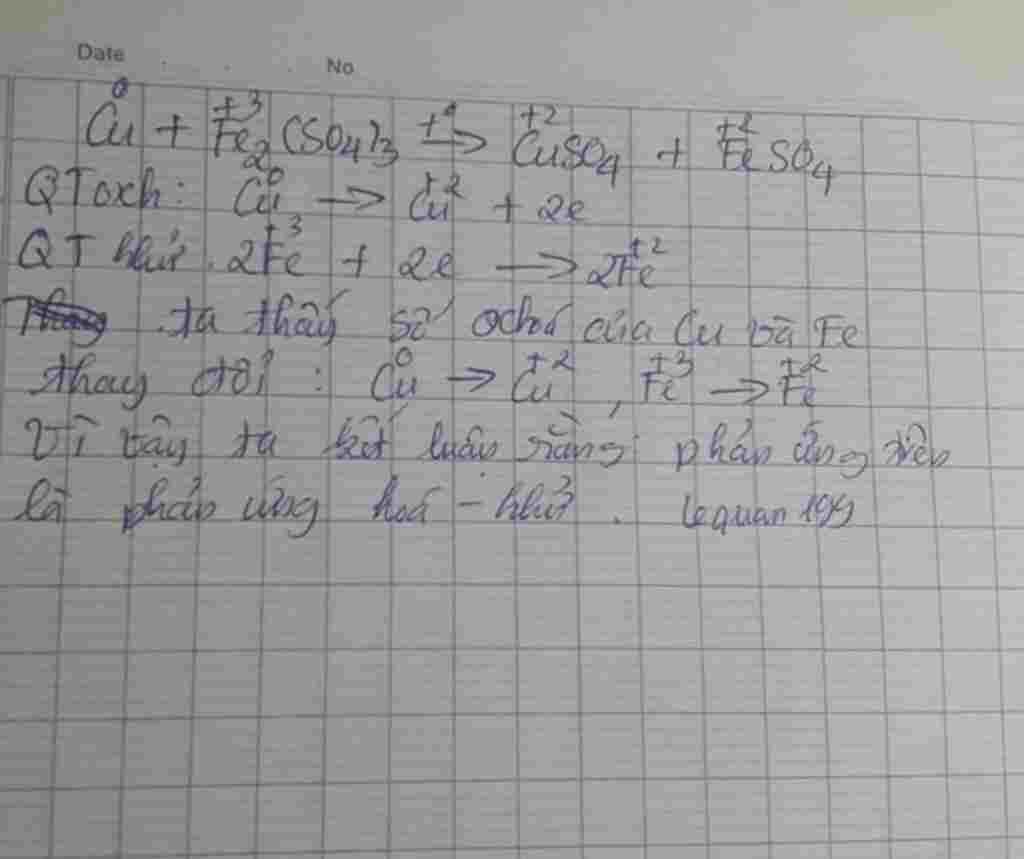 Date No
Cu⁰ + Fe⁺³₂(SO₄)₃ t° → Cu⁺²SO₄ + Fe⁺²SO₄
QT oxh: Cu⁰ → Cu⁺² + 2e
QT khử: 2Fe⁺³ + 2e → 2Fe⁺²
ta thấy số oxh của Cu và Fe
thay đổi: Cu⁰ → Cu⁺², Fe⁺³ → Fe⁺²
Vì vậy ta kết luận rằng phản ứng trên
là phản ứng hoá - khử. lequan